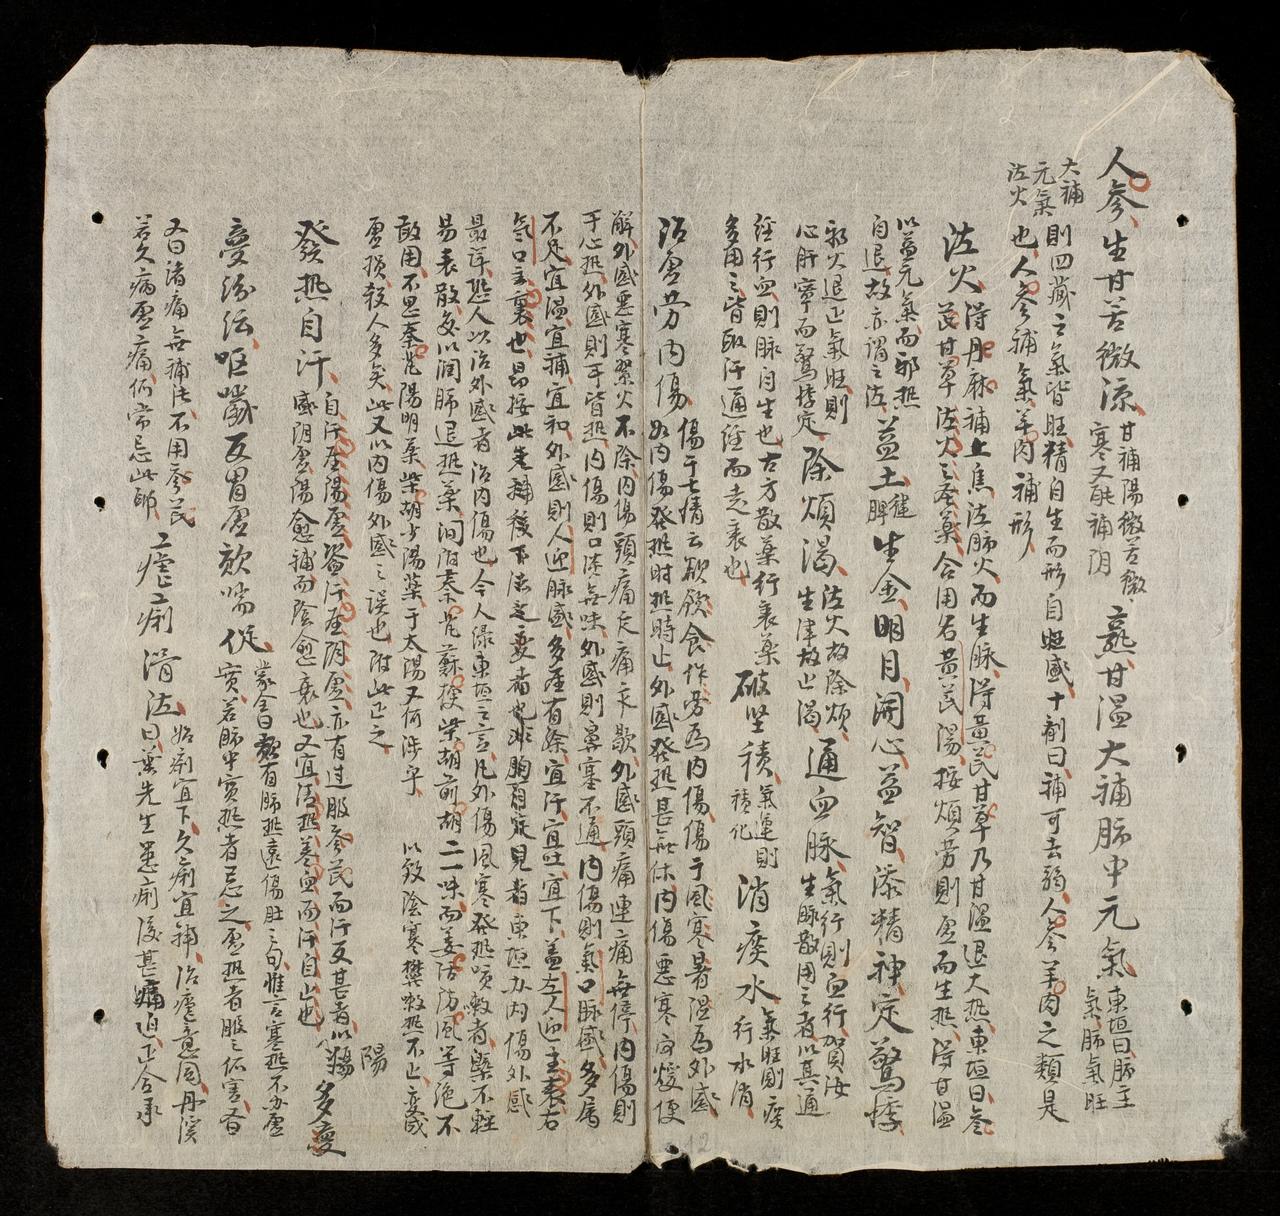 人參、生甘苦微涼、甘補陽微苦微寒又能補阴、熟甘溫大補肺中元氣、東垣曰肺主氣肺氣旺
大補元氣泻火
則四臟之氣皆旺精自生而形自盛十劑曰補可去弱人參羊肉之類是
也、人參補氣羊肉補形
泻火、得升麻補上焦泻肺火而生脉得黃芪甘草乃甘溫退大热東垣曰參芪甘草泻火之圣藥合用名黃芪湯、按煩劳則虛而生热得甘溫
以益元氣而邪热自退故亦謂之泻、益土健脾生金、明目開心益智添精神定驚悸
邪火退正氣旺則心肝寧而驚悸定、除煩渴、泻火故除煩、生津故止渴、通血脉、氣行則血行賀汝生脉散用之者以其通
經行血則脉自生也古方散藥行表藥多用之皆取汗通經而走表也、破坚積、氣運則積化消痰水、氣旺則痰行水消
治虛劳内傷、傷于七情六欲飲食作劳為内傷傷于風寒暑湿為外感如内傷發热时热時止外感發热甚無休内傷惡寒得煖便
解外感惡寒絮火不除内傷頭痛乍痛乍歇外感頭痛連痛無停内傷則
手心热外感則手背热内傷則口淡無味外感則鼻塞不通内傷則氣口脉盛多属
不足宜温宜補宜和外感則人迎脉盛多属有餘宜汗宜吐宜下、盖左人迎主表右
氣口主裏也昂按此先補後下法之变者也非胸有定見者東垣办内傷外感
最詳恐人以治外感者治内傷也今人缘東垣之言凡外傷風寒發热咳嗽者槩不輕
易表散处以潤肺退热藥间附秦艽蘇梗柴胡前胡二一味而羌活防風等绝不
敢用不思秦艽陽明藥柴胡少陽藥于太陽又何涉乎以致陰寒鬱嗽热不止变成
虛損殺人多矣此又以内傷外感之误也附此正之
發热自汗、自汗属陽虛盗汗属阴虛亦有过服參芪而汗反甚者以陽
盛阴虛陽愈補而陰愈衰也又宜清热養血而汗自止也多夢
夢紛紜、呕噦反胃虛欬喘促、蒙全曰歎有肺热還傷肺之句惟言寒热不办虛
實若肺中實热者忌之虛热者服之何害
又曰诸痛無補法不用參芪若久病虛痛何嘗忌此耶、瘧痢滑泻、始痢宜下久痢宜補、治瘧意同、丹溪曰葉先生患痢後甚痛迫正合承
陽